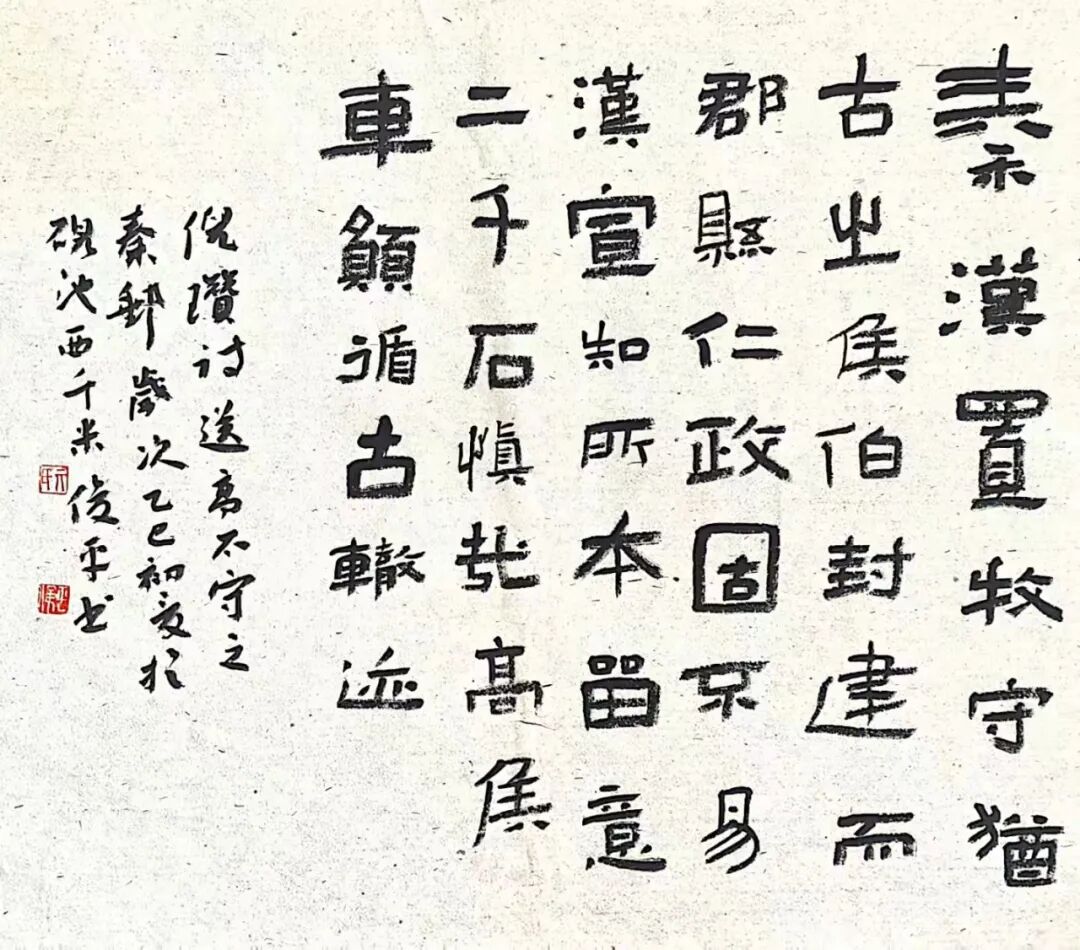 秦漢置牧守猶
古之侯伯封建而
郡縣仁政固不易
漢宣知所本留意
二千石慎哉高侯
車願循古轍迹
倪瓚诗送高太守之
秦郵歲次乙巳初夏於
硯池西千米俊平书